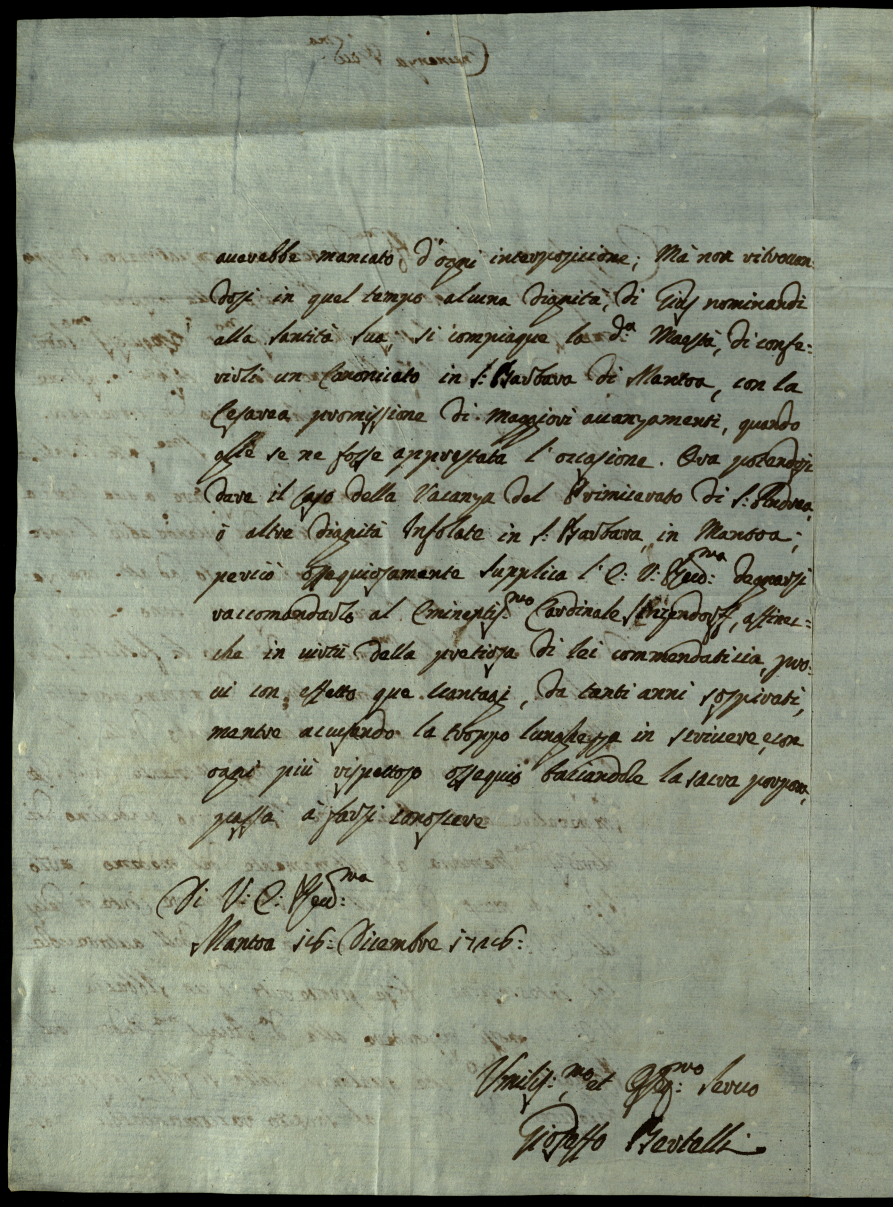 auerebbe mancato d'ogni interposicione; Mà non ritrouan-
dosi in quel tempo alcuna dignità, di Gius nominandi
alla Santità Sua, si compiaque la d.ª Maestà, di confe-
rirli un Canonicato in S: Barbara di Mantoa, con la
Cesarea promissione di maggiori auanzamenti, quando
se ne fosse apprestata l'occasione. Ora potendosi
dare il caso della Vacanza del Primicerato di S: Andrea,
ò altre dignità Infolate in S: Barbara, in Mantoa;
perciò ossequiosamente supplica l'E: V: Reu:ma degnarsi
raccomandarlo al Eminentis:mo Cardinale, affinc-
che in uirtù della pretiosa di lei commendaticia, pro-
ui con effetto que uantagi, da tanti anni sospirati,
mentre accusando la troppo lunghezza in scriuere, e con
ogni più rispettoso ossequio baciandole la sacra porpora,
passa à farsi conoscere
Di V: E: Reu:ma
Mantoa 16: Dicembre 1726:
Umilis:mo et Osseq:mo Seruo
Gioseffo Bertelli